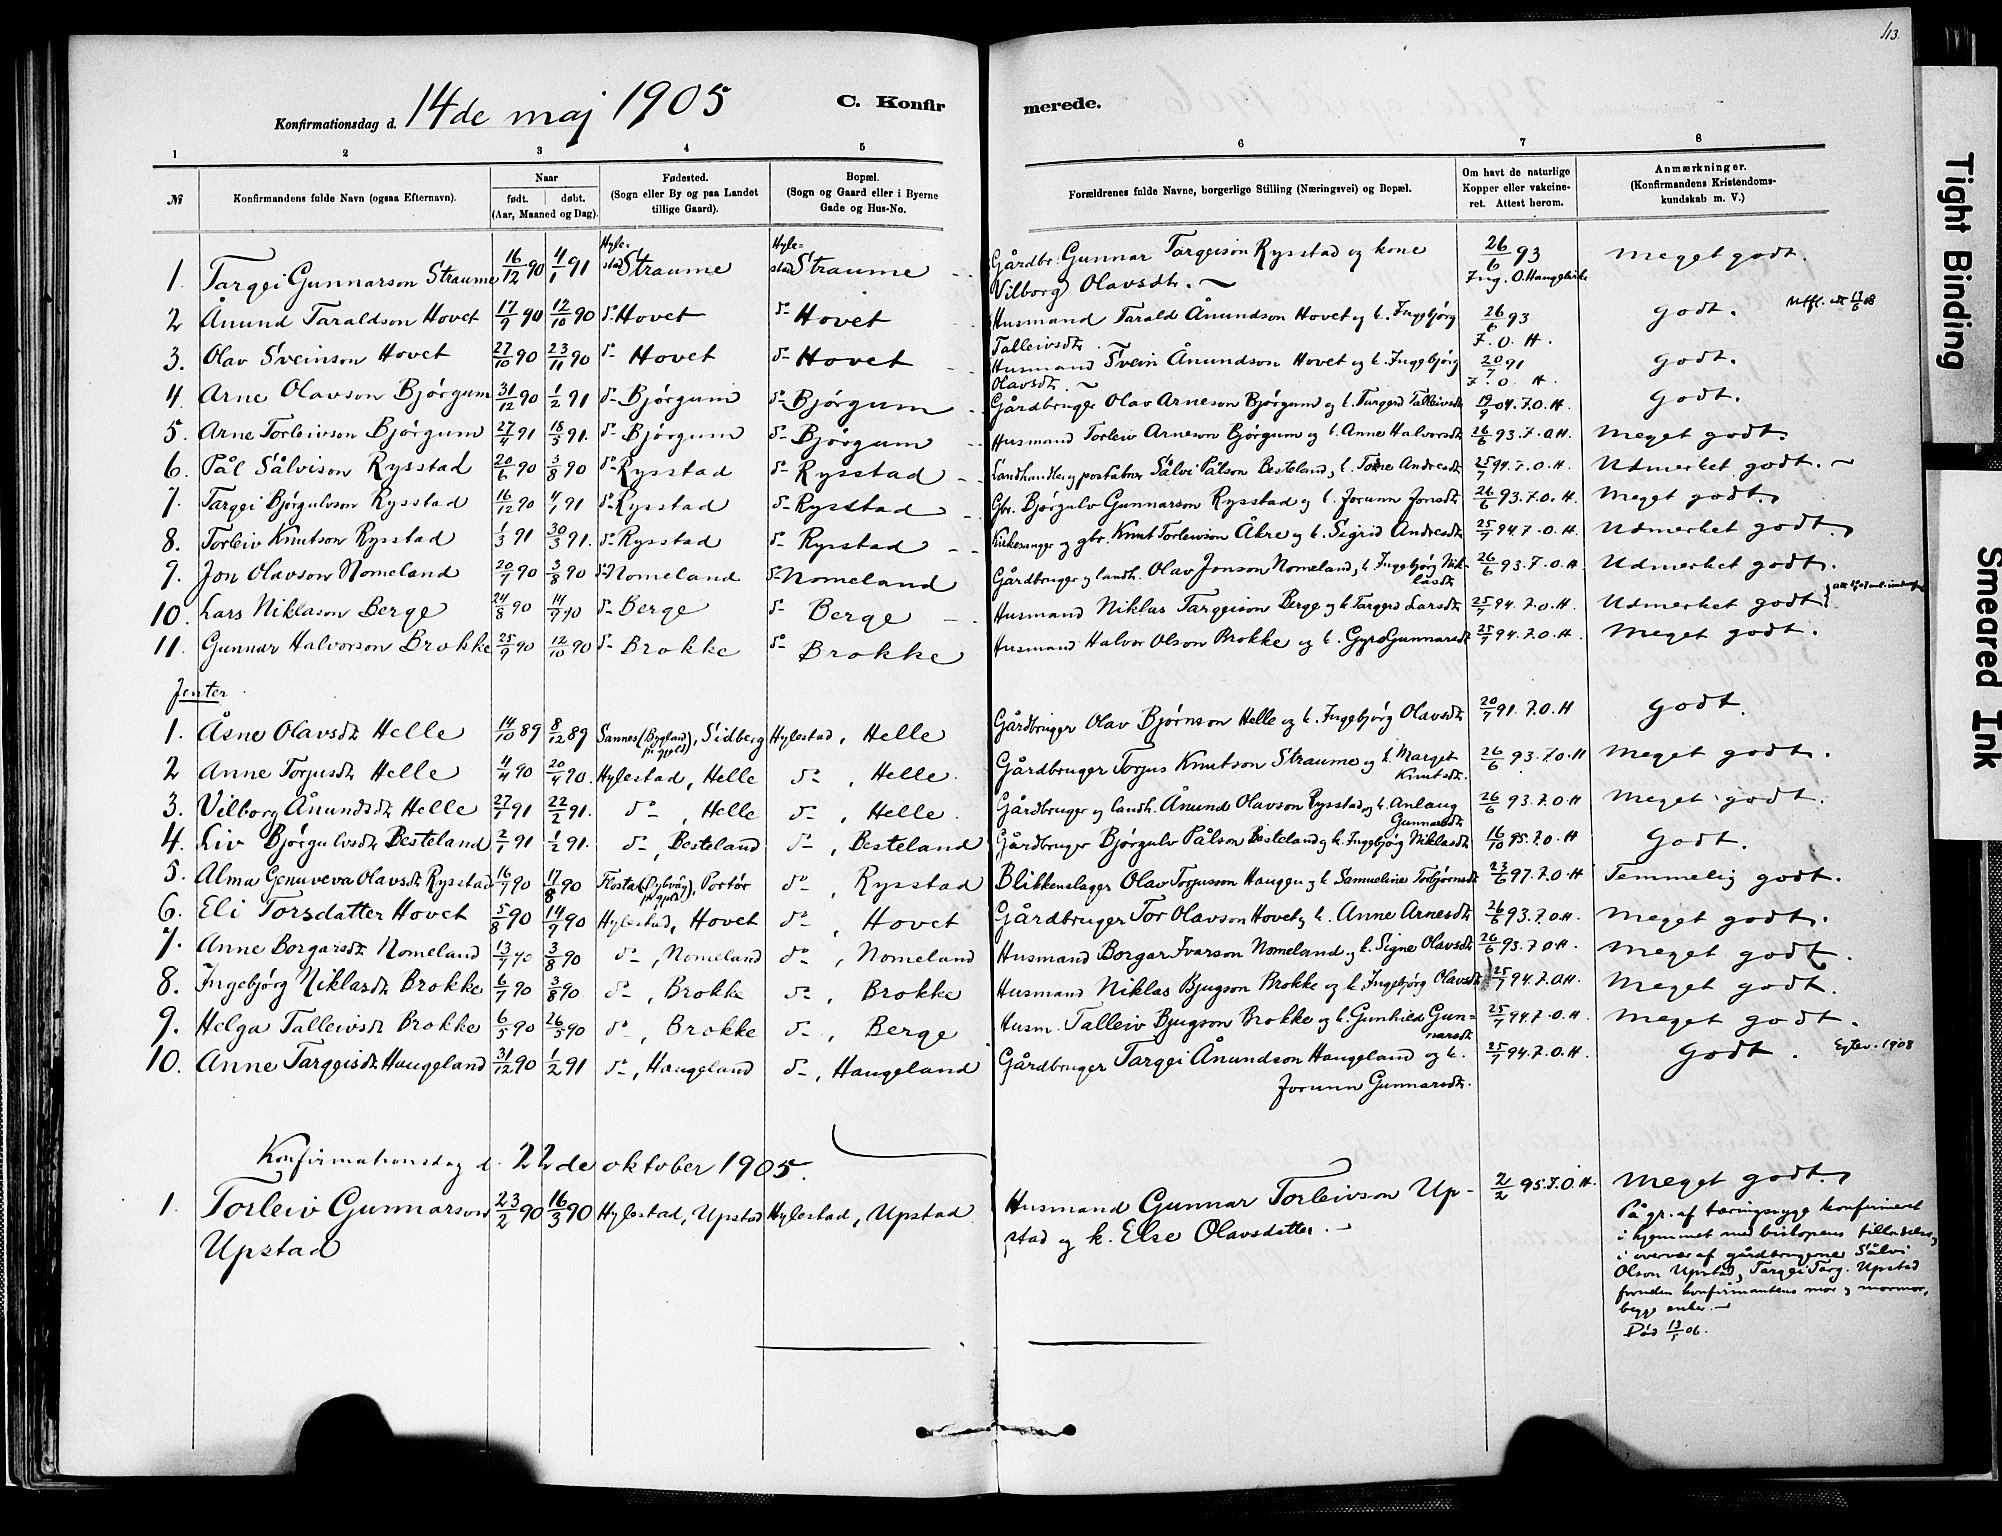 113.
Konfirmationsdag d. 14de maj 1905
C. Konfirmerede.
1 2 3 4 5 6 7 8
№
Konfirmandens fulde Navn (ogsaa Efternavn).
Naar født. døbt. (Aar, Maaned og Dag).
Fødested. (Sogn eller By og paa Landet tillige Gaard).
Bopæl. (Sogn og Gaard eller i Byerne Gade og Hus-No.
Forældrenes fulde Navne, borgerlige Stilling (Næringsvei) og Bopæl.
Om havt de naturlige Kopper eller vakcineret. Attest herom.
Anmærkninger. (Konfirmandens Kristendomskundskab m. V.)
1. Targei Gunnarson Straume 16/12 90 4/1 91 Hylestad Straume Hylestad Straume Gårdbr. Gunnar Targeison Rysstad og kone Vilborg Olavsdt. 26/6 93 F.ng. O. Haugebirk Meget godt.
2 Ånund Taraldson Hovet 17/9 90 12/10 90 do Hovet do Hovet Husmand Tarald Ånundson Hovet og k. Ingebjørg Talleivsdt. 26/6 93 F. O. H. Godt.
3. Olav Sveinson Hovet 27/10 90 23/11 90 do Hovet do Hovet Husmand Svein Ånundson Hovet og k. Ingebjørg Olavsdt. 20/7 91 F. O. H. Godt.
4. Arne Olavson Bjørgum 31/12 90 1/2 91 do Bjørgum do Bjørgum Gårdbruger Olav Arneson Bjørgum og k. Turgerd Talleivsdt. 19/9 04. F. O. H. Godt.
5. Arne Torleivson Bjørgum 27/4 91 18/5 91. do Bjørgum do Bjørgum Husmand Torleiv Arneson Bjørgum og k. Anne Halvorsdt. 26/6 93. F. O. H. Meget godt.
6. Pål Sålvison Rysstad 20/6 90 3/8 90 do Rysstad do Rysstad Landhandler og postaabner Sålvi Pålson Besteland, k. Torne Andresdt. 25/7 94. F. O. H. Udmerket godt.
7. Targei Bjørgulvson Rysstad 16/12 90 4/1 91 do Rysstad do Rysstad Gbr. Bjørgulv Gunnarson Rysstad og k. Jorunn Jonsdt. 26/6 93. F. O. H. Meget godt.
8. Torleiv Knutson Rysstad 1/3 91 30/3 91. do Rysstad do Rysstad Kirkesanger og gbr. Knut Torleivson Åkre og k. Sigrid Andresdt. 25/7 94. F. O. H. Udmerket godt.
9. Jon Olavson Nomeland 20/7 90 3/8 90 do Nomeland do Nomeland Gårdbruger og landh. Olav Jonson Nomeland, k. Ingebjørg Niklasdt. 26/6 93. F. O. H. Udmerket godt.
10. Lars Niklason Berge 24/8 90 14/9 90 do Berge do Berge Husmand Niklas Targeison Berge og k. Targerd Larsdt. 25/7 94. F. O. H. Udmerket godt
11. Gunnar Halvorson Brokke 25/9 90 12/10 90 do Brokke do Brokke Husmand Halvor Olson Brokke og k. Gyro Gunnarsdt. 25/7 94. F. O. H. Meget godt.
Jenter
1. Åsne Olavsdt. Helle 14/10 89 8/12 89 Sannes (Bygland prgjeld), Sidberg Hylestad, Helle Gårdbruger Olav Bjørnson Helle og k. Ingebjørg Olavsdt. 20/7 91. F. O. H Godt.
2 Anne Torjusdt. Helle 4/4 90 20/4 90. Hylestad, Helle do, Helle. Gårdbruger Torjus Knutson Straume og k. Marget Knutsdt. 26/6 93. F. O. H Meget godt.
3. Vilborg Ånundsdt. Helle 27/1 91 22/2 91. do, Helle do, Helle. Gårdbruger og landh. Ånund Olavson Rysstad og k. Anlaug Gunnarsdt. 26/6 93. F. O. H Meget godt.
4. Liv Bjørgulvsdt. Besteland 2/1 91 1/2 91. do, Besteland do, Besteland Gårdbruger Bjørgulv Pålson Besteland og k. Ingebjørg Niklasdt. 16/10 95. F. O. H Godt.
5. Alma Genuveva Olavsdt. Rysstad 16/7 90 17/8 90 Flosta (Dybvåg prgjeld), Portør do, Rysstad Blikkenslager Olav Torjusson Haugen og k. Samueline Torbjørnsdt. 23/6 97. F. O. H Temmelig godt.
6. Eli Torsdatter Hovet 5/8 90 14/9 90 Hylestad, Hovet do, Hovet Gårdbruger Tor Olavson Hovet og k. Anne Arnesdt. 26/6 93. F. O. H. Meget godt.
7. Anne Borgarsdt. Nomeland 13/7 90 3/8 90 do, Nomeland do, Nomeland Husmand Borgar Ivarson Nomeland og k. Signe Olavsdt. 26/6 93. F. O. H. Meget godt.
8. Ingebjørg Niklasdt. Brokke 6/7 90 3/8 90 do, Brokke do, Brokke Husmand Niklas Bjugson Brokke og k. Ingebjørg Olavsdt. 25/7 94. F. O. H. Meget godt.
9. Helga Talleivsdt. Brokke 6/5 90 26/5 90 do, Brokke do, Berge Husm. Talleiv Bjugson Brokke og k. Gunhild Gunnarsdt. 25/7 94. F. O. H. Meget godt.
10. Anne Targeisdt. Haugeland 31/12 90 1/2 91 do, Haugeland do, Haugeland Gårdbruger Targei Ånundson Haugeland og k. Jorunn Gunnarsdt. 25/7 94. F. O. H. Godt.
Konfirmationsdag d. 22de oktober 1905.
1. Torleiv Gunnarson Upstad 23/2 90 16/3 90 Hylestad, Upstad Hylestad, Upstad Husmand Gunnar Torleivson Upstad og k. Else Olavsdatter. 2/2 95. F. O. H. Meget godt.
På gr. af tæringssyge konfirmeret
i hjemmet med biskopens tilladelse,
i overvær af gårdbrugerne Sålvi
Olson Upstad, Targei Targ. Upstad
foruden konfirmantens mor og mormor,
begge enker.
Død 13/1 06.
Tight Binding
Smeared Ink